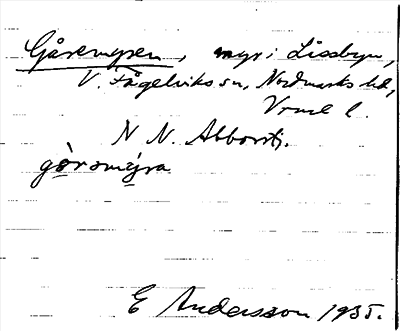 Gåremyren, myr i Lissbyn,
V. Fågelviks sn, Nordmarks hd,
Vrml l.
N N. Abborrtj.
göromýra
E Andersson 1935.